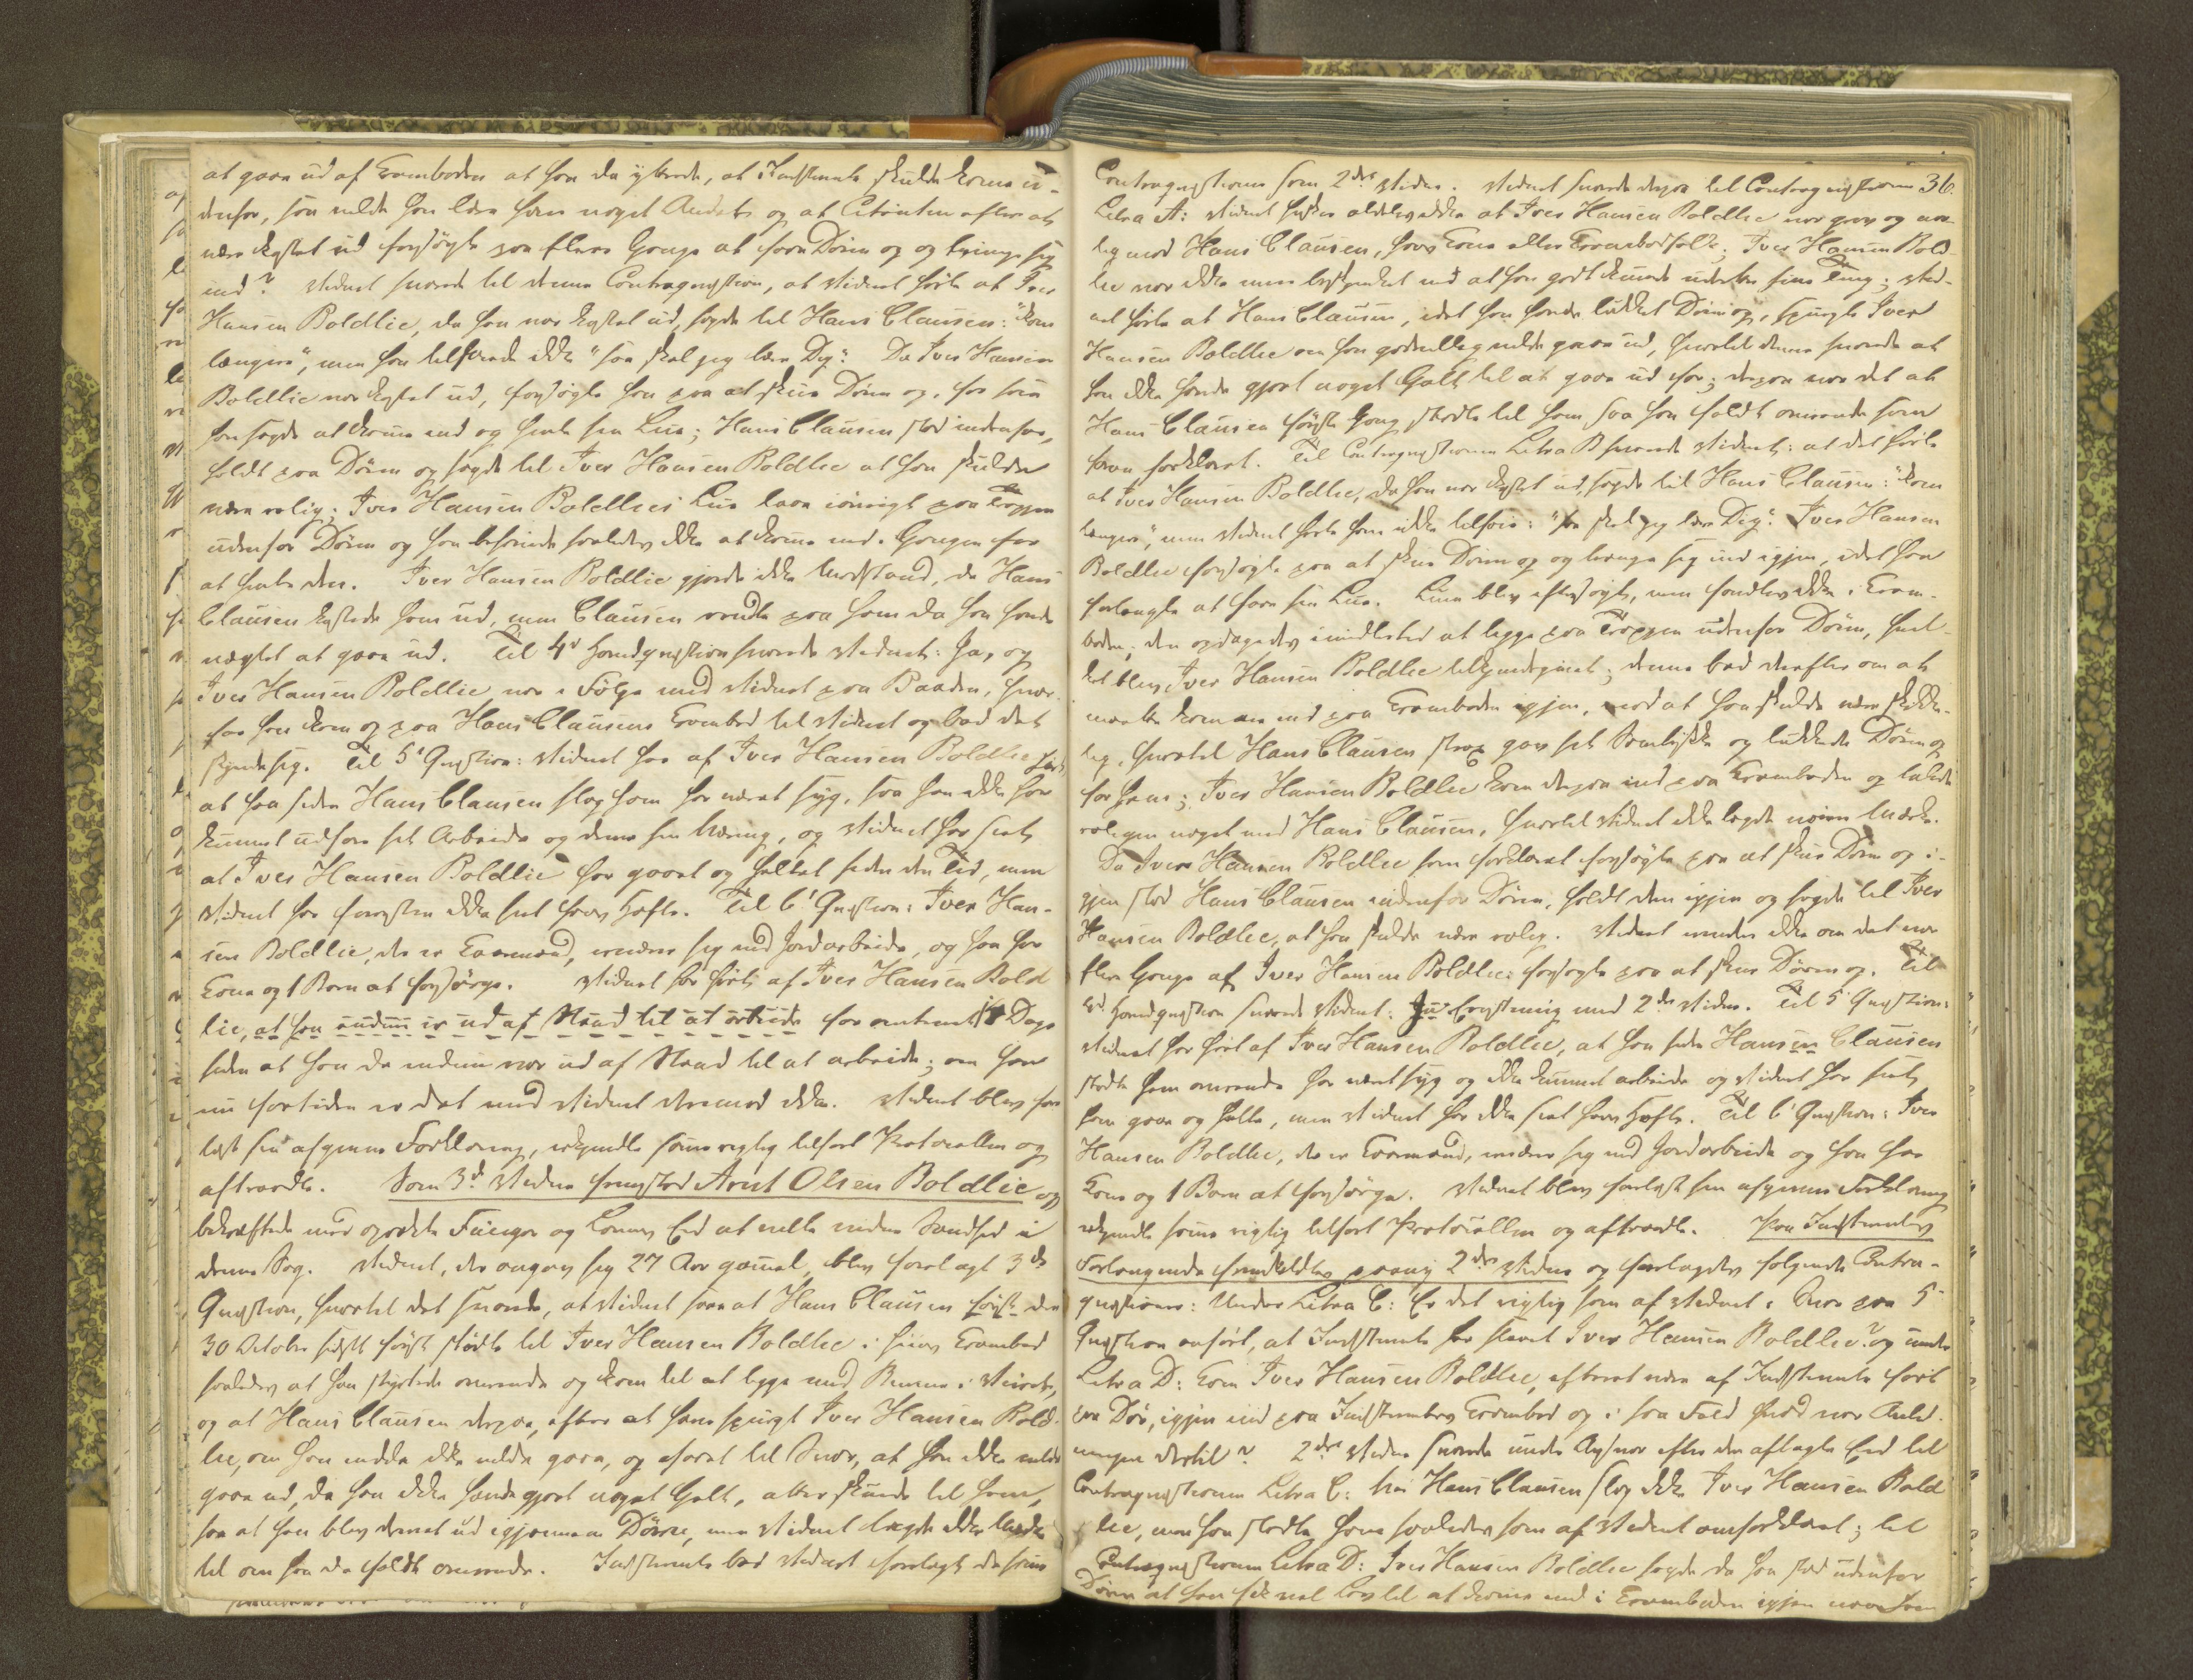 at gaae ud af Kramboden at han da yttrede, at Indstevnte skulde komme u-
denfor, saa vilde han lære ham noget Andet og at Citanten efter at
være kastet ud forsøgte paa flere Gange at faae Døren op og trænge sig
ind? Vidnet svarede til denne Contraqvæstion, at Vidnet hørte at Iver
Hansen Boldlie, da han var kastet ud, sagde til Hans Clausen: "kom
længere", men han tilføiede ikke "saa skal jeg lære Dig". Da Iver Hansen
Boldlie var kastet ud, forsøgte han paa at skue Døren op, for som
han sagde at komme ind og hente sin Lue; Hans Clausen stod indenfor,
holdt paa Døren og sagde til Iver Hansen Boldlie at han skulde
være rolig; Iver Hansen Boldlies Lue laae imidlertid paa Trappen
udenfor Døren og han behøvede saaledes ikke at komme ind i Gangen for
at hente den. Iver Hansen Boldlie gjorde ikke Modstand, da Hans
Clausen kastede ham ud, men Clausen rendte paa ham da han havde
nægtet at gaae ud. Til 4de Hovedqvæstion svarede Vidnet: Ja, og
Iver Hansen Boldlie var i Følge med Vidnet paa Baaden, hvor-
for han kom op paa Hans Clausens Krambod til Vidnet og bad det
skynde sig. Til 5te Qvæstion: Vidnet har af Iver Hansen Boldlie hørt,
at han siden Hans Clausen slog ham har været syg, saa han ikke har
kunnet udføre sit Arbeide og denne sin Næring, og Vidnet har seet,
at Iver Hansen Boldlie har gaaet og haltet siden den Tid, men
Vidnet har forresten ikke seet hans Hofte. Til 6te Qvæstion: Iver Han-
sen Boldlie, der er Evermand, ernærer sig med Jordarbeide, og han har
Kone og 1 Barn at forsørge. Vidnet har hørt af Iver Hansen Bold
lie, at han endnu er ud af Stand til at arbeide for omtrent 14 Dage
siden at han da endnu var ud af Stand til at arbeide; om han
nu fortiden er det veed Vidnet derimod ikke. Vidnet blev fore
læst sin afgivne Forklaring, vedgik samme rigtig tilført Protocollen og
aftraadte. Som 3de Vidne fremstod Arnt Olsen Boldlie og
bekræftede med oprakte Fingre og Lovens Eed at ville vidne Sandhed i
denne Sag. Vidnet, der angav sig 27 Aar gammel, blev forelagt 3de
Qvæstion, hvortil det svarede, at Vidnet saae at Hans Clausen først den
30 October sidstl. først stødte til Iver Hansen Boldlie i hans Krambod
saaledes at han styrtede overende og kom til at ligge med Benene i Veiret,
og at Hans Clausen derpaa, efter at have spurgt Iver Hansen Bold-
lie, om han endda ikke vilde gaae, og faaet til Svar, at han ikke vilde
gaae ud, da han ikke havde gjort noget Galt, atter skumte til ham,
saa at han blev drevet ud igjennem Døren, men Vidnet lagde ikke Mærke
til om han da faldt overende. Indstevnte bad Vidnet forelagt de samme
Contraqvæstioner som 2det Vidne. Vidnet svarede derpaa til Contraqvæstionen 36.
Litra A: Vidnet husker aldeles ikke at Iver Hansen Boldlie var grov og uar-
tig mod Hans Clausen, hans Kone eller Krambodfolk; Iver Hansen Bold-
lie var ikke mere beskjænket end at han godt kunde udrette sine Ting; Vid-
net hørte at Hans Clausen, idet han havde lukket Døren op, spurgte Iver
Hansen Boldlie om han godvillig vilde gaae ud, hvortil denne svarede at
han ikke havde gjort noget Galt til at gaae ud for; derpaa var det at
Hans Clausen første Gang stødte til ham saa han faldt overende som
foran forklaret. Til Contraqvæstionen Litra B svarede Vidnet: at det hørte
at Iver Hansen Boldlie, da han var kastet ud, sagde til Hans Clausen: "kom
længere", men Vidnet hørte ham ikke tilføie: "saa skal jeg lære Dig". Iver Hansen
Boldlie forsøgte paa at skue Døren op og trænge sig ind igjen, idet han
forlangte at faae sin Lue. Luen blev eftersøgt, men fandtes ikke i Kram-
boden; den opdagedes imidlertid at ligge paa Trappen udenfor Døren, hvil-
ket blev Iver Hansen Boldlie tilkjendegivet; denne bad derefter om at
maatte komme ind paa Kramboden igjen, mod at han skulde være skikke-
lig, hvortil Hans Clausen strax gav sit Samtykke og lukkede Døren op
for ham; Iver Hansen Boldlie kom derpaa ind paa Kramboden og talede
roligen noget med Hans Clausen, hvortil Vidnet ikke lagde nøiere Mærke.
Da Iver Hansen Boldlie som forklaret forsøgte paa at skue Døren op i-
gjen stod Hans Clausen indenfor Døren, holdt den igjen og sagde til Iver
Hansen Boldlie, at han skulde være rolig. Vidnet mindes ikke om det var
flere Gange at Iver Hansen Boldlie forsøgte paa at skue Døren op. Til
4de Hovedqvæstion svarede Vidnet: Ja i Overensstemmelse med 2det Vidne. Til 5te Qvæstion:
Vidnet har hørt af Iver Hansen Boldlie, at han siden Hansen Clausen
stødte ham overende har været syg og ikke kunnet arbeide og Vidnet har seet
ham gaae og halte, men Vidnet har ikke seet hans Hofte. Til 6te Qvæstion: Iver
Hansen Boldlie, der er Evermand, ernærer sig med Jordarbeide og han har
Kone og 1 Barn at forsørge. Vidnet blev forelæst sin afgivne Forklaring
vedgik samme rigtig tilført Protocollen og aftraadte. Paa Indstevntes
Forlangende fremkaldtes paany 2det Vidne og forelagdes følgende Contra-
qvæstioner: Under Litra C: Er det rigtig som af Vidnet i Svar paa 5te
Qvæstion anført, at Indstevnte har slaaet Iver Hansen Boldlie? og under
Litra D: Kom Iver Hansen Boldlie, efterat være af Indstevnte ført
paa Dør, igjen ind paa Indstevntes Krambod og i saa Fald hvad var Anled-
ningen dertil? 2det Vidne svarede under Ansvar efter den aflagte Eed til
Contraqvæstionen Litra C: Nei Hans Clausen slog ikke Iver Hansen Bold
lie, men han stødte ham saaledes som af Vidnet omforklaret; til
Contraqvæstionen Litra D: Iver Hansen Boldlie sagde da han stod udenfor
Døren at han fik vel Lov til at komme ind i Kramboden igjen naar han